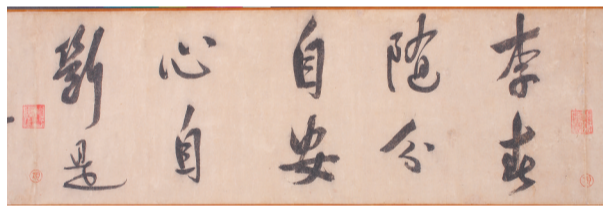 李春
随分
自安
心自
斷是